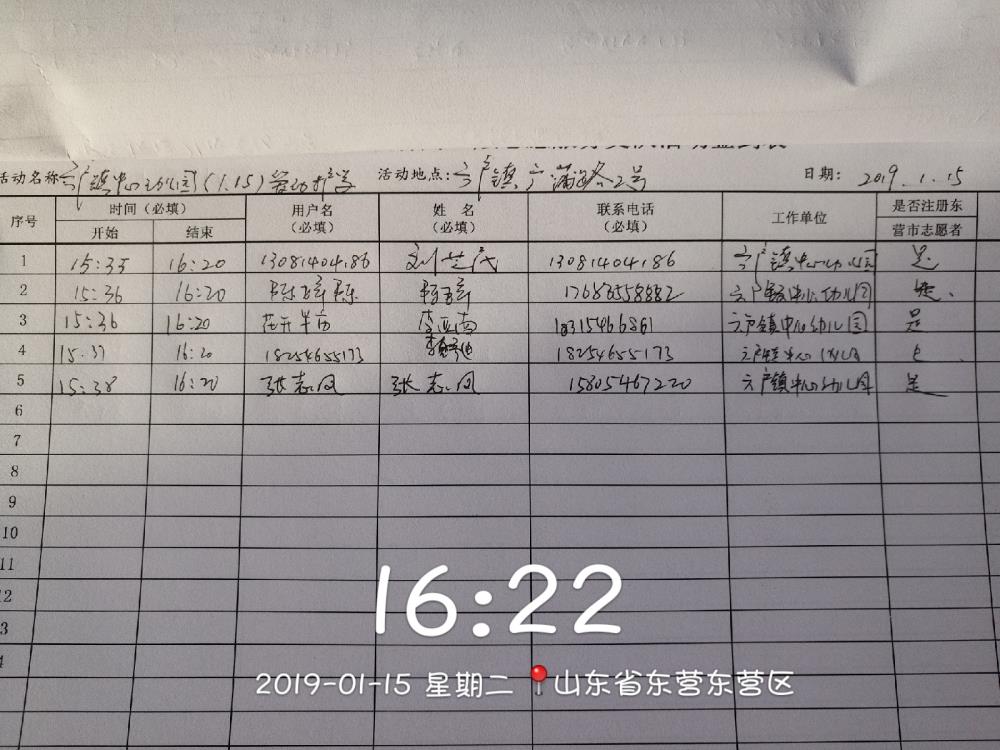 活动名称 六户镇中心幼儿园(1.15)爱心护学 活动地点: 六户镇广蒲路2号 日期: 2019.1.15
序号 时间(必填) 用户名(必填) 姓名(必填) 联系电话(必填) 工作单位 是否注册东营市志愿者
开始 结束
1 15:35 16:20 13081404186 刘芝民 13081404186 六户镇中心幼儿园 是
2 15:36 16:20 17686558882 六户镇中心幼儿园 是.
3 15:36 16:20 花开半夏 李亚南 1831546686 六户镇中心幼儿园 是
4 15:37 16:20 18254655173 18254655173 六户镇中心幼儿园
5 15:38 16:20 张志凤 张志凤 15805467220 六户镇中心幼儿园 是
6
7
8
9
10
11
2
3
4
16:22
2019-01-15 星期二 山东省东营东营区